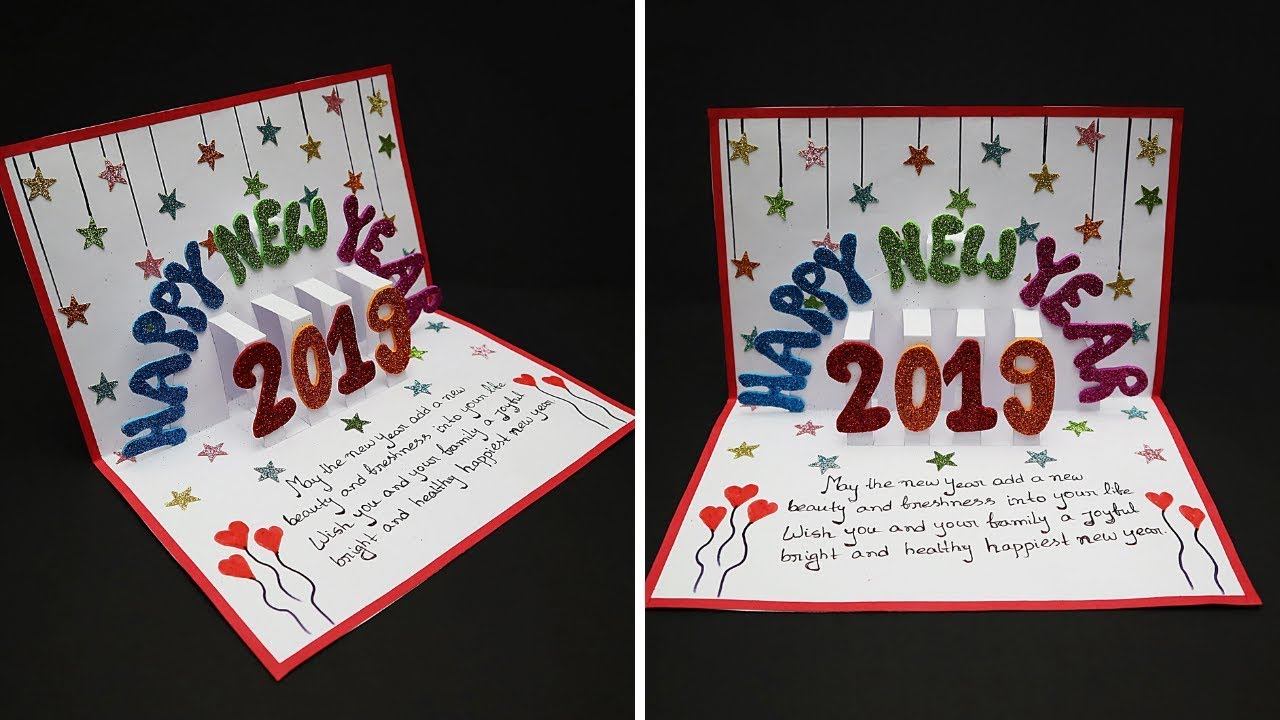 HAPPY NEW YEAR
2019
May the new year add a new
beauty and freshness into your life
Wish you and your family a joyful
bright and healthy happiest new year.
HAPPY NEW YEAR
2019
May the new year add a new
beauty and freshness into your life
Wish you and your family a joyful
bright and healthy happiest new year.